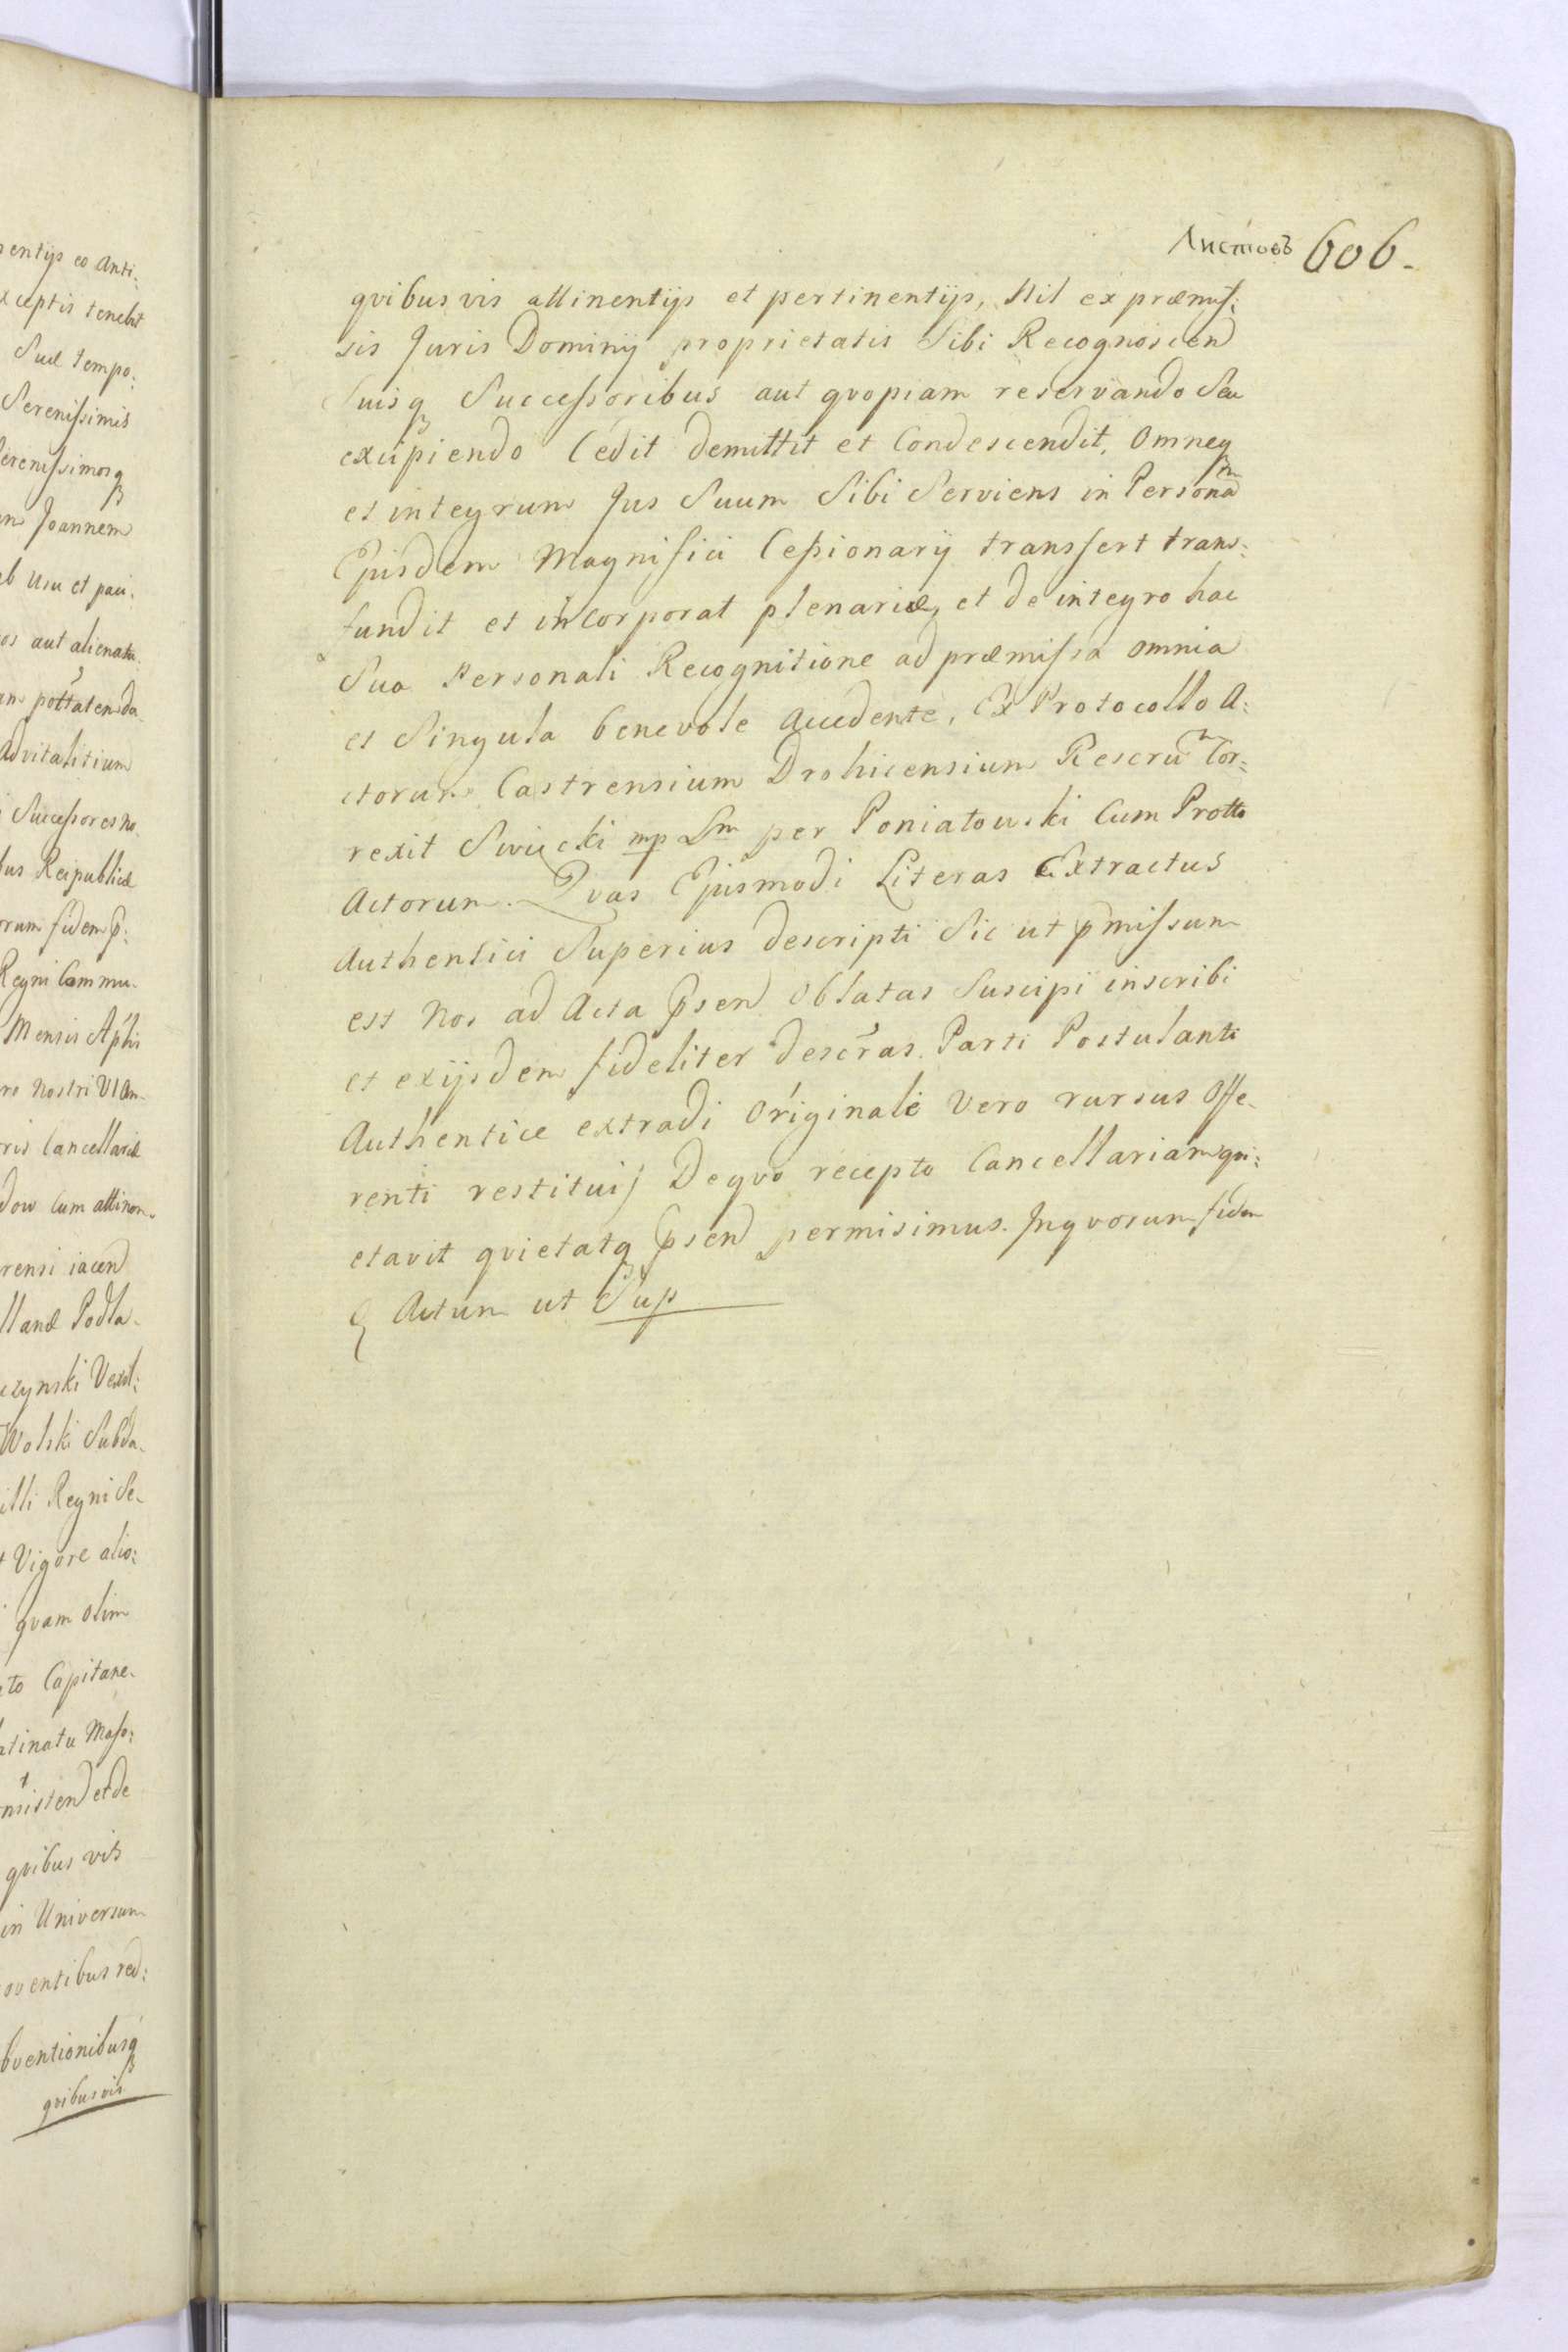 entijs eo Anti:
xceptis tenebit
Suæ tempo:
Serenissimis
erenissimosq
Joannem
ab usu et paci:
os aut aliena
pottatenda
advitalitium
Successores No
bus Reipublicæ
orum fidem p:
Regni Commu-
Mensis Aplis
ro Nostri Vlan-
ris Cancellariæ
dow Cum attinen-
rensi iacen
llanæ Podla-
czynski Vexil:
Wolski Subda-
illi Regni Se-
Vigore alio:
qvam olim
to Capitane-
atinatu Maso:
nsisten et de
qvibus vis
in Universum
oventibus red:
bventionibusq
qvibus vis
Листовъ 606.
qvibus vis attinentijs et pertinentijs, Nil ex præmis:
sis Juris Dominij proprietatis Sibi Recognoscen
Suisq Successoribus aut qvopiam reservando Seu
excipiendo Cedit demittit et Condescendit, Omneq
et integrum Jus Suum Sibi Serviens in Persona
Ejusdem Magnifici Cessionarij transfert trans:
fundit et incorporat plenarie, et de integro hac
Sua Personali Recognitione ad præmissa omnia
et Singula benevole accedente, Ex Protocollo A:
ctorum Castrensium Drohicensium Rescru Cor:
rexit Swiecki mp Sm per Poniatowski Cum Protto
Actorum. Qvas Ejusmodi Literas Extractus
Authentici Superius descripti Sic ut pmissum
est Nos ad Acta Psen Oblatas Suscipi inscribi
et exijsdem fideliter descras. Parti Postulanti
Authentice extradi Originale vero rursus Offe-
renti restitui, De qvo recepto Cancellariam qvi:
etavit qvietatq Psen permisimus. Inqvorum fidem
& Actum ut Sup